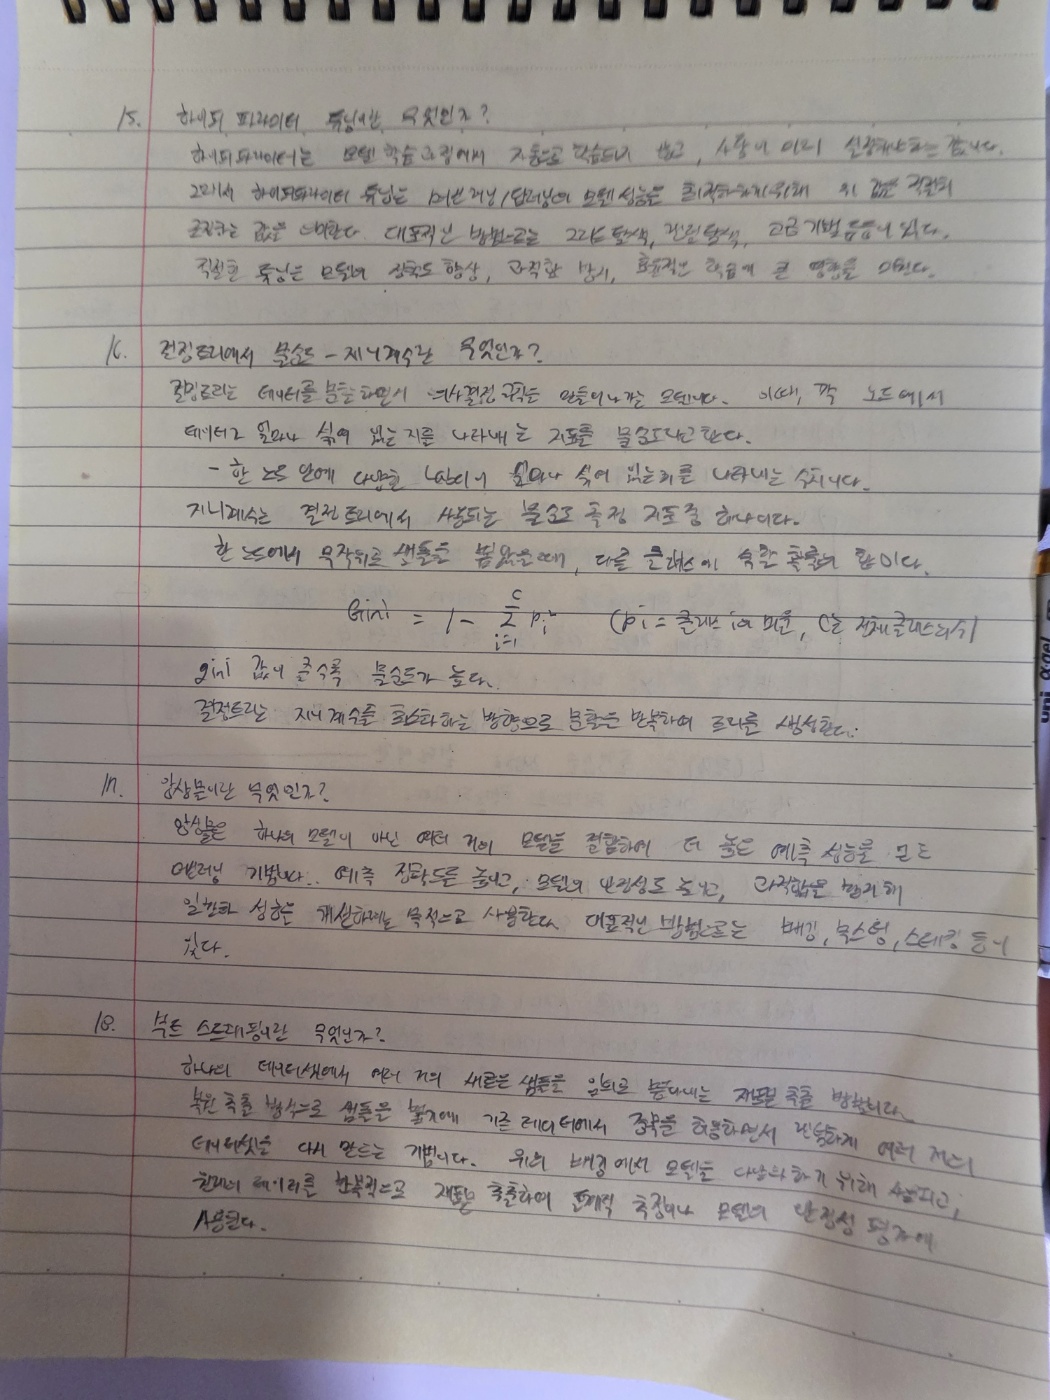 15. 하이퍼 파라미터 튜닝이란 무엇인가?
하이퍼파라미터는 모델 학습 과정에서 자동으로 학습되지 않고, 사람이 미리 설정해야하는 값이다.
그래서 하이퍼파라미터 튜닝은 머신러닝/딥러닝의 모델 성능을 최적화하기위해 이 값을 적절히
조정하는 것을 의미한다. 대표적인 방법으로는 그리드 탐색, 랜덤 탐색, 고급기법 등이 있다.
적절한 튜닝은 모델의 정확도 향상, 과적합 방지, 효율적인 학습에 큰 영향을 미친다.
16. 결정트리에서 불순도 - 지니계수란 무엇인가?
결정트리는 데이터를 분할하면서 의사결정 규칙을 만들어나가는 모델이다. 이때, 각 노드에서
데이터가 얼마나 섞여 있는지를 나타내는 지표를 불순도라고 한다.
- 한 노드 안에 다양한 label이 얼마나 섞여 있는지를 나타내는 수치이다.
지니계수는 결정트리에서 사용되는 불순도 측정 지표 중 하나이다.
한 노드에서 무작위로 샘플을 뽑았을때, 다른 클래스에 속할 확률의 합이다.
Gini = 1 - Σ_{i=1}^{C} pi² (pi = 클래스 i의 비율, C는 전체 클래스의 수)
gini 값이 클수록 불순도가 높다.
결정트리는 지니계수를 최소화하는 방향으로 분할을 반복하여 트리를 생성한다.
17. 앙상블이란 무엇인가?
앙상블은 하나의 모델이 아닌 여러 개의 모델을 결합하여 더 높은 예측 성능을
머신러닝 기법이다. 예측 정확도를 높이고, 모델의 안정성도 높이고, 과적합을 방지해
일반화 성능을 개선하려는 목적으로 사용한다. 대표적인 방법으로는 배깅, 부스팅, 스태킹 등이
있다.
18. 부트 스트래핑이란 무엇인가?
하나의 데이터셋에서 여러 개의 새로운 샘플을 임의로 뽑아내는 재표본 추출 방법이다.
복원 추출 방식으로 샘플을 뽑기에 기존 데이터에서 중복을 허용하면서 랜덤하게 여러 개의
데이터셋을 다시 만드는 기법이다. 위의 배깅에서 모델을 다양화하기 위해 쓰이고,
한정된 데이터를 반복적으로 재표본 추출하여 통계적 측정이나 모델의 안정성 평가에
사용된다.